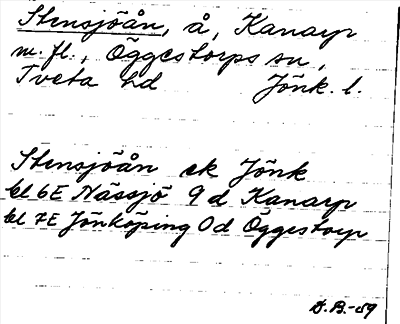 Stensjöån, å, Kanarp
m. fl., Öggestorps sn,
Tveta hd Jönk. l.
Stensjöån ek Jönk
bl 6E Nässjö 9 d Kanarp
bl 7E Jönköping 0 d Öggestorp
D. B. -59